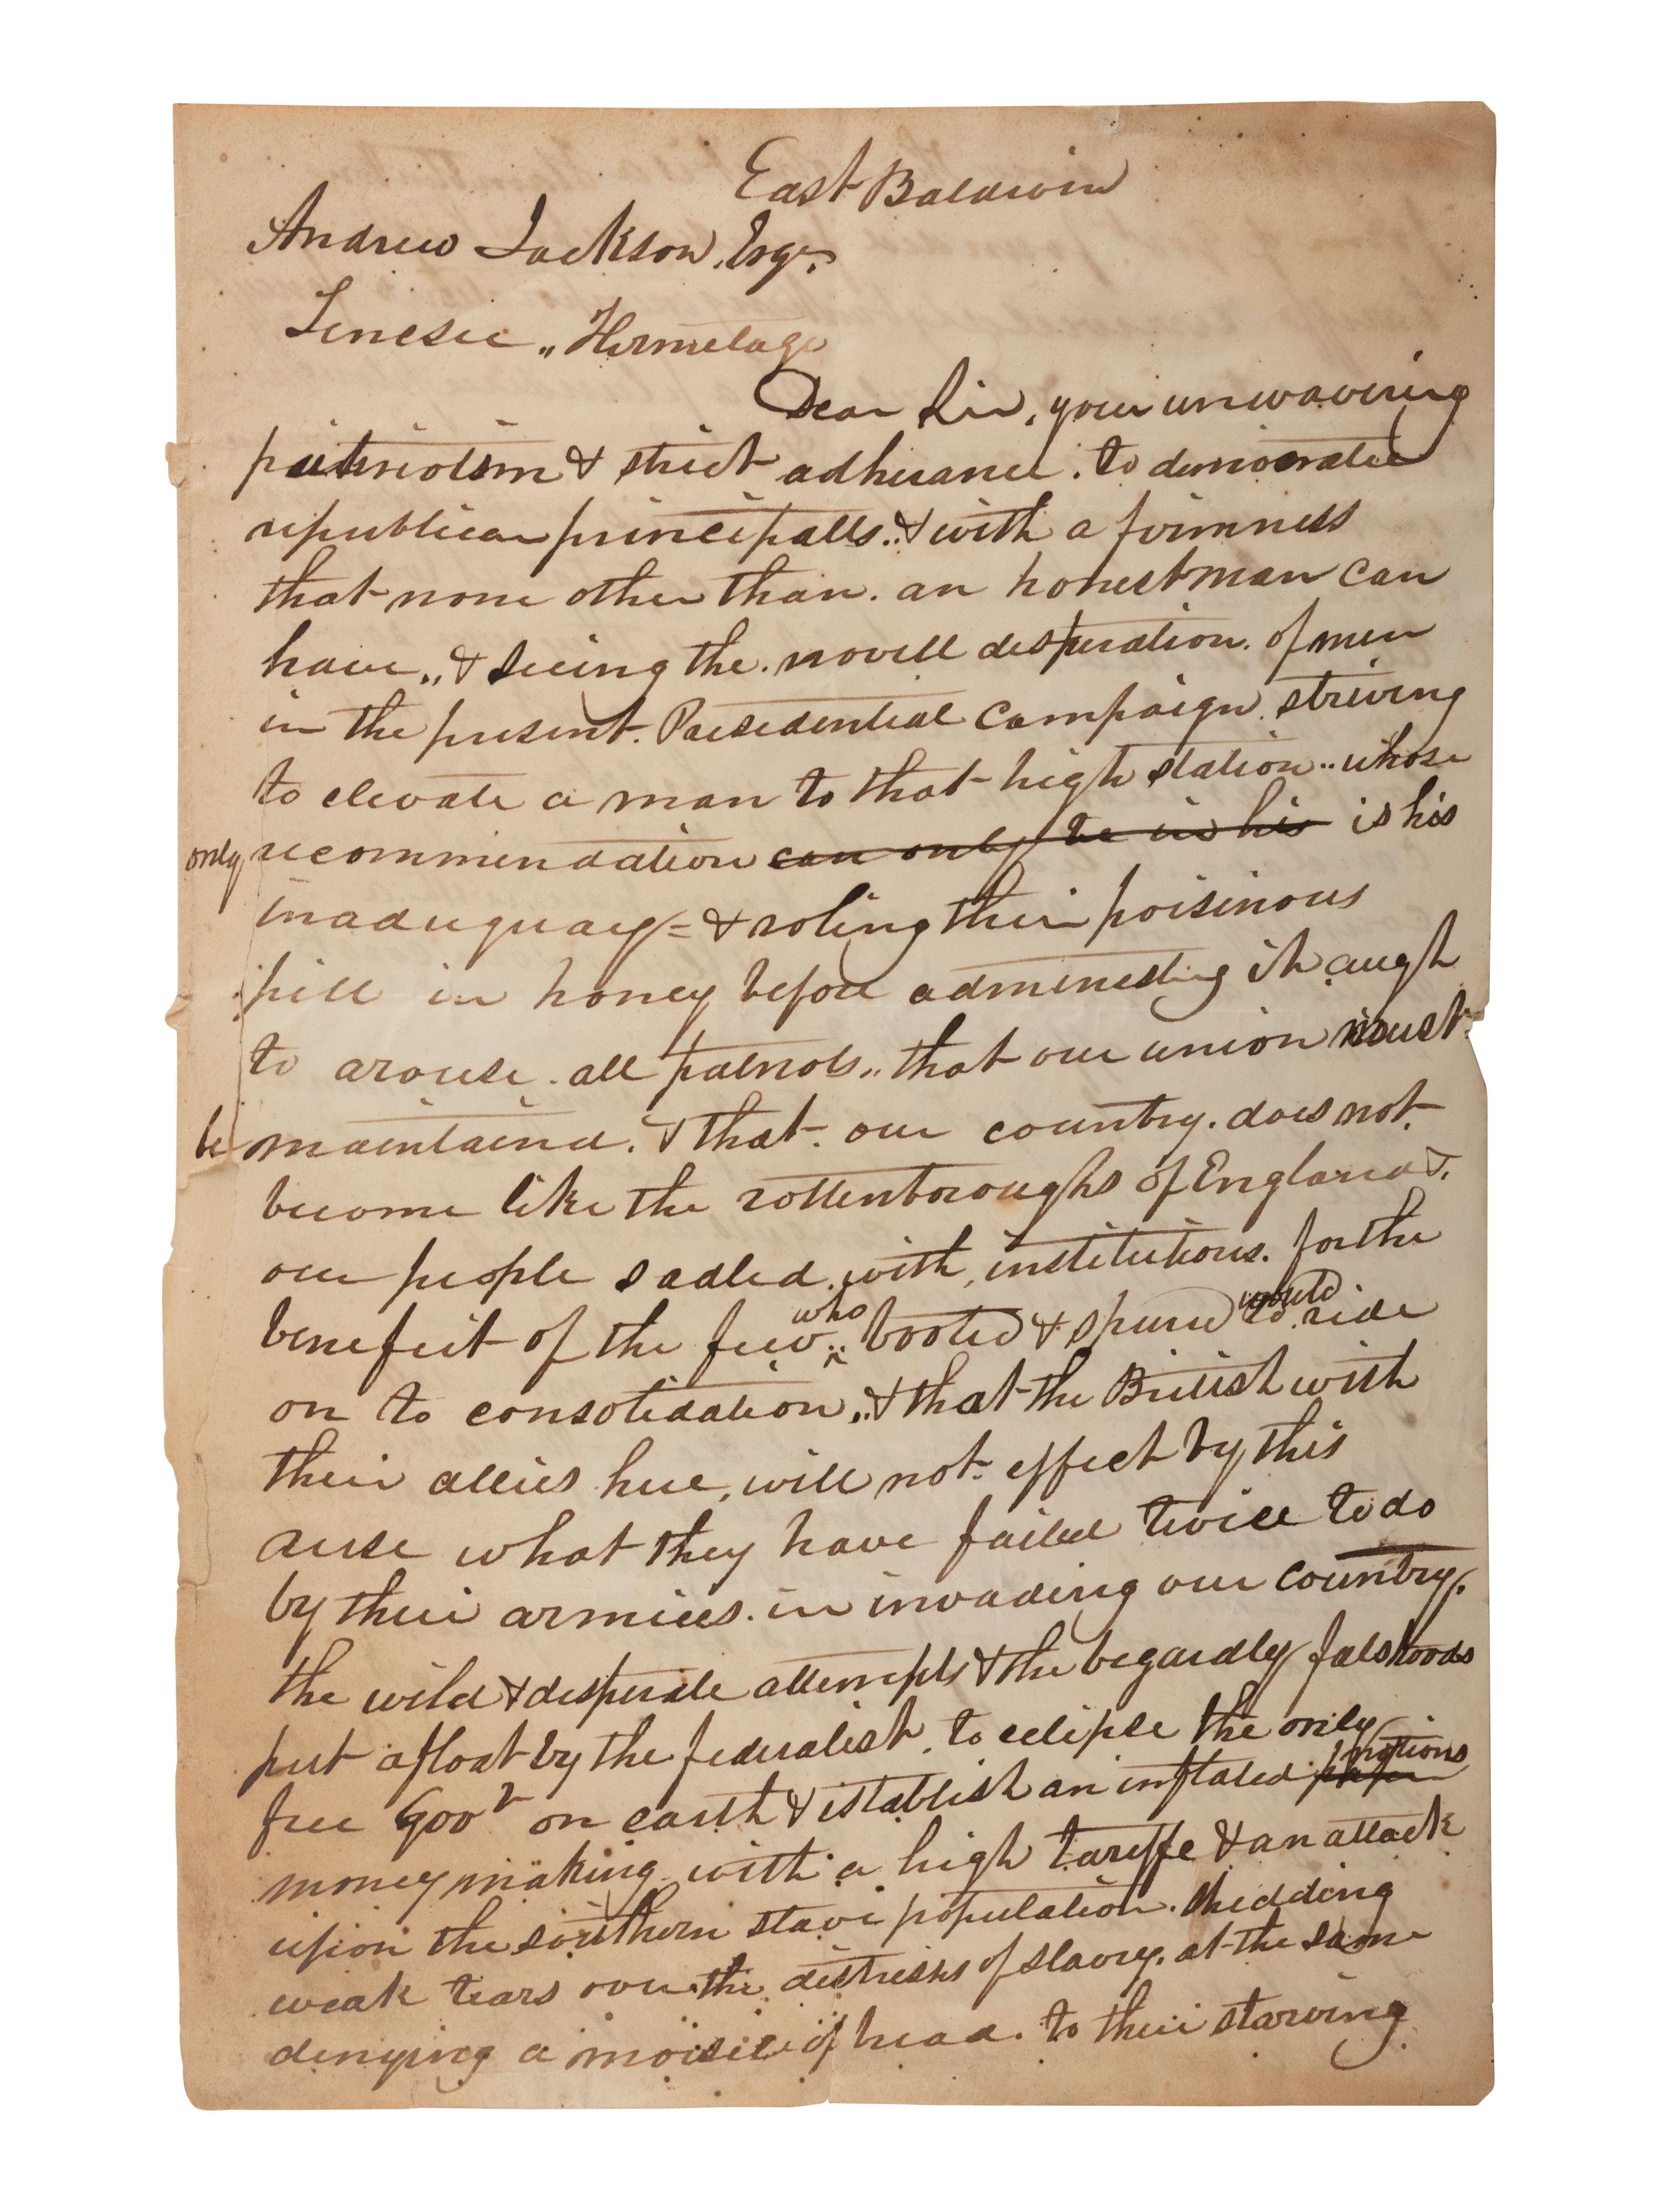 East Baldwin
Andrew Jackson, Esqr.
Tenesee ,, Hermetage
Dear Sir, your unwavering
patriotism & strict adherance. to democratic
republican principalls.. & with a firmness
that none other than. an honest man can
have ,, & seeing the. novell desperation. of men
in the present. Presedential Campaign. striving
to elevate a man to that high station .. whose
only recommendation can only be in his is his
inadequacy = & roling their poisinous
pill in honey before admenesting it. augh
to arouse. all patriots ,, that our union must
be maintaind. & that. our country. does not.
become like the rottenboroughs of England &.
our people sadled. with, institutions. for the
benefeit of the few .. who booted & spured would to ride
on to consolidation ,, & that the British with
their allies here, will not. effect by this
ruse what they have failed twice to do
by their armies. in invading our country.
the wild & desperate attempts & the begardly falshoods
put afloat by the federalist. to eclipse the only
free Govt on earth & establish an inflated paper notions
money making with a high tariffe & an attack
upon the southern slave population. shedding
weak tears over the distresses of slavery. at the same
denying a moisel of bread. to their starving